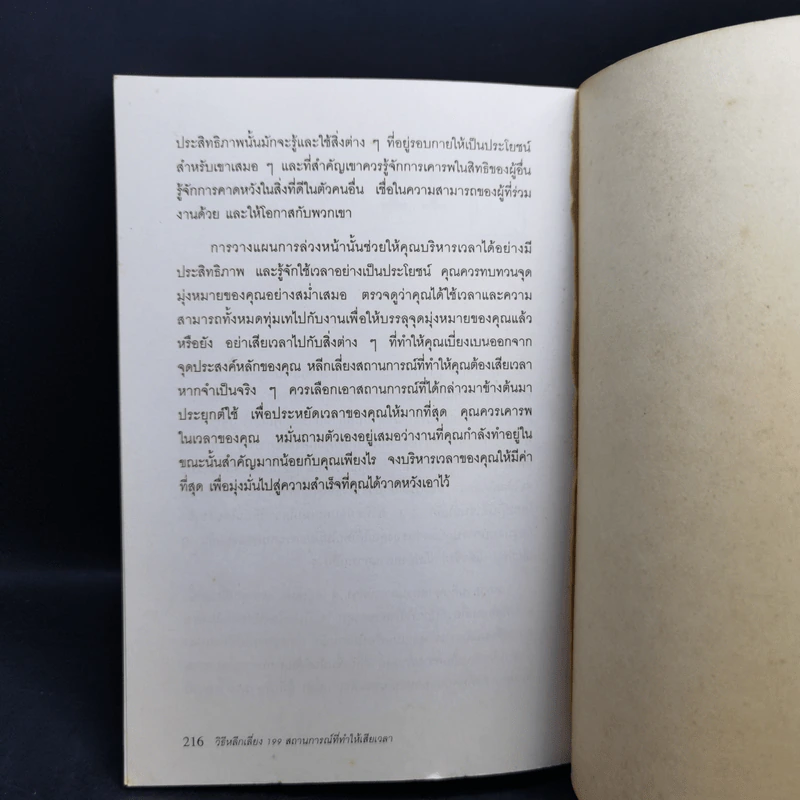 ประสิทธิภาพนั้นมักจะรู้และใช้สิ่งต่าง ๆ ที่อยู่รอบกายให้เป็นประโยชน์
สำหรับเขาเสมอ ๆ และที่สำคัญเขาควรรู้จักการเคารพในสิทธิของผู้อื่น
รู้จักการคาดหวังในสิ่งที่ดีในตัวคนอื่น เชื่อในความสามารถของผู้ที่ร่วม
งานด้วย และให้โอกาสกับพวกเขา
การวางแผนการล่วงหน้านั้นช่วยให้คุณบริหารเวลาได้อย่างมี
ประสิทธิภาพ และรู้จักใช้เวลาอย่างเป็นประโยชน์ คุณควรทบทวนจุด
มุ่งหมายของคุณอย่างสม่ำเสมอ ตรวจดูว่าคุณได้ใช้เวลาและความ
สามารถทั้งหมดทุ่มเทไปกับงานเพื่อให้บรรลุจุดมุ่งหมายของคุณแล้ว
หรือยัง อย่าเสียเวลาไปกับสิ่งต่าง ๆ ที่ทำให้คุณเบี่ยงเบนออกจาก
จุดประสงค์หลักของคุณ หลีกเลี่ยงสถานการณ์ที่ทำให้คุณต้องเสียเวลา
หากจำเป็นจริง ๆ ควรเลือกเอาสถานการณ์ที่ได้กล่าวมาข้างต้นมา
ประยุกต์ใช้ เพื่อประหยัดเวลาของคุณให้มากที่สุด คุณควรเคารพ
ในเวลาของคุณ หมั่นถามตัวเองอยู่เสมอว่างานที่คุณกำลังทำอยู่ใน
ขณะนั้นสำคัญมากน้อยกับคุณเพียงไร จงบริหารเวลาของคุณให้มีค่า
ที่สุด เพื่อมุ่งมั่นไปสู่ความสำเร็จที่คุณได้วาดหวังเอาไว้
216 วิธีหลีกเลี่ยง 199 สถานการณ์ที่ทำให้เสียเวลา